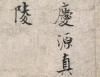 慶源真
陵